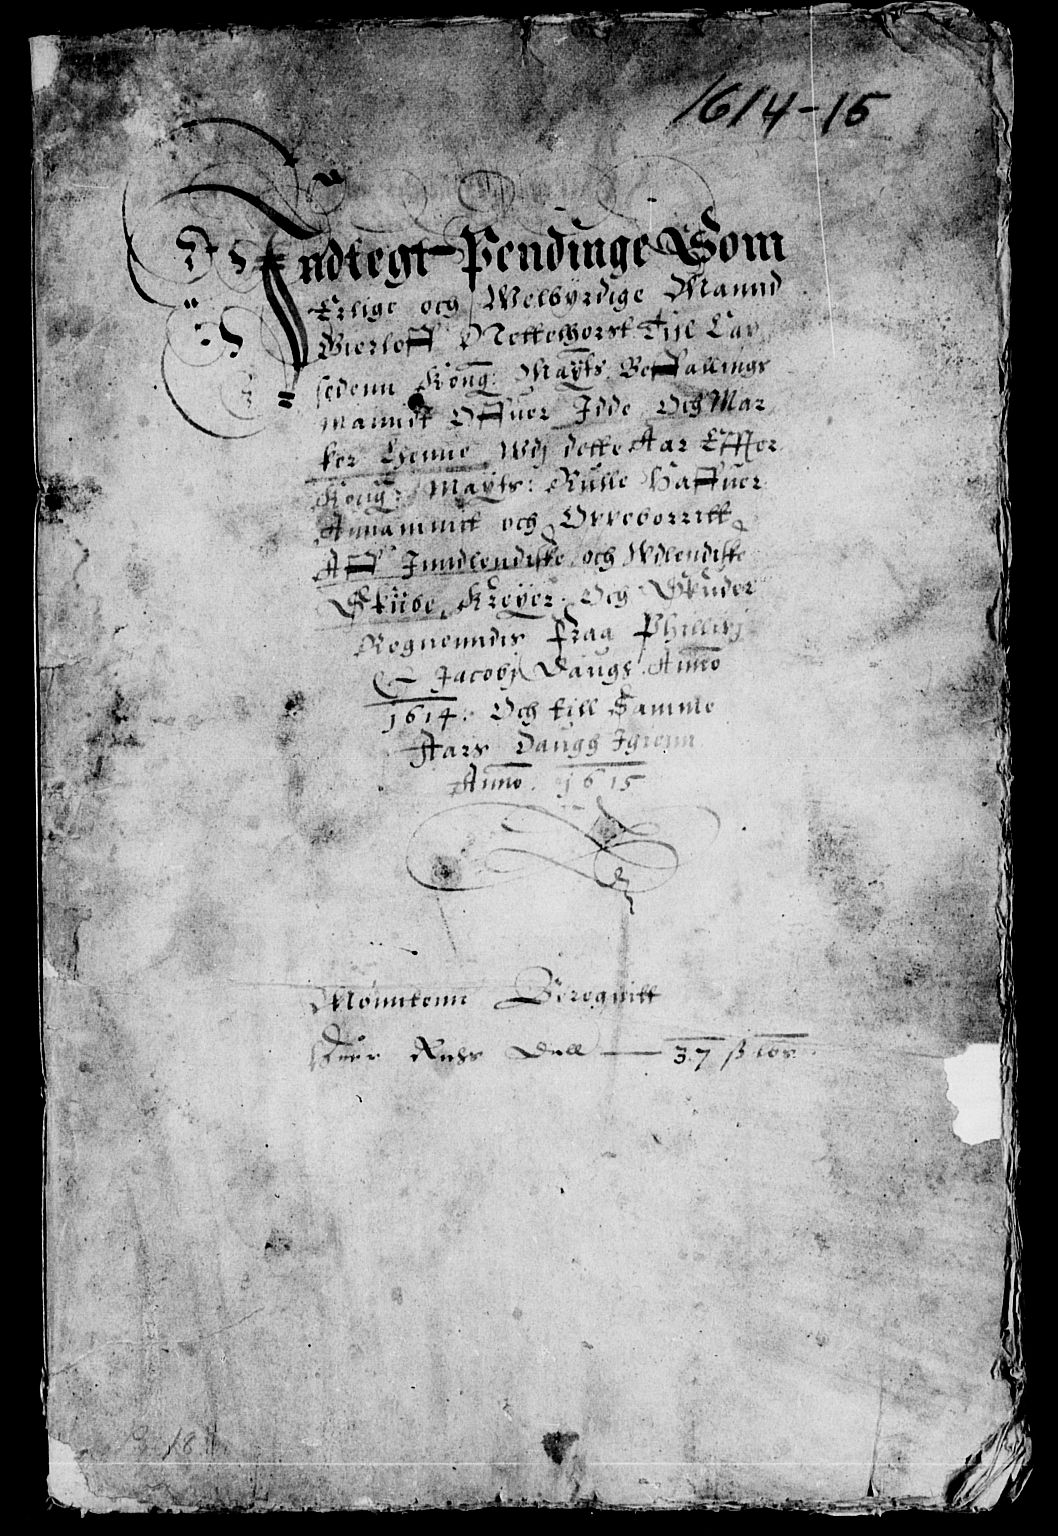 1614-15
Indtegt Pendinge Som
Erlige och Welbyrdige Mannd
Gierloff Nettelhorst Till Lay
sedenn Kong: Mayts Beffallings
manndt Offuer Idde och Mar
ker Lhenne Wdj dette Aar Effter
Kong: Mayts: Rulle Haffuer
Annammitt och Oppeborritt
Aff Inndlendiske och Wdlendiske
Skiibe, Kreyer, Och Skuder
Regnenndis fraa Phillipj
Jacobj Daugs Anno
1614. Och till Samme
Aars Daugh Igienn
Anno. 1615
Mønntenn Beregnitt
Huer Richs Dall — 37 ß